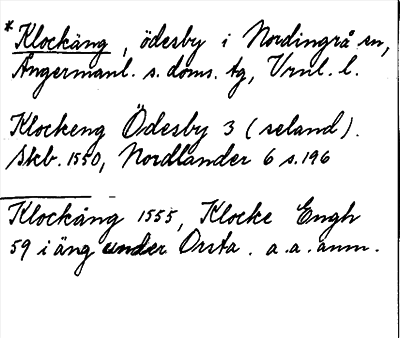 *Klockäng, ödesby i Nordingrå sn,
Ångermanl. s. doms. tg, Vrnl. l.
Klockeng Ödesby 3 (seland).
Skb. 1550, Nordlander 6 s. 196
Klockäng 1555, Klocke Engh
59 i äng under Orsta. a. a. anm.